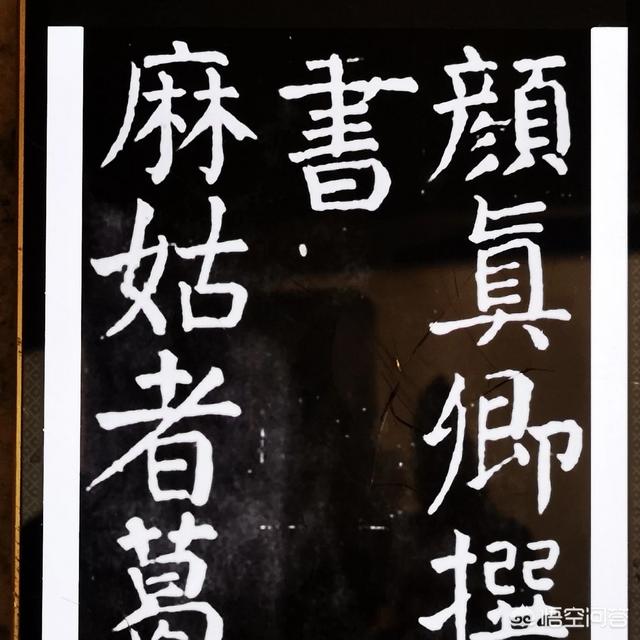 顔眞卿撰
書
麻姑者葛
悟空问答